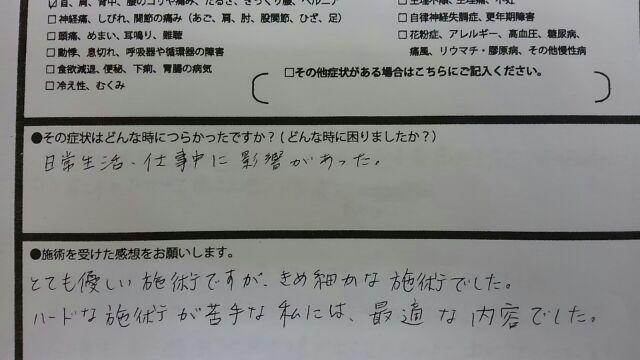 首、肩、背中、腰のコリや痛み、だるさ、ぎっくり腰、ヘルニア
□神経痛、しびれ、関節の痛み（あご、肩、肘、股関節、ひざ、足）
□頭痛、めまい、耳鳴り、難聴
□動悸、息切れ、呼吸器や循環器の障害
□食欲減退、便秘、下痢、胃腸の病気
□冷え性、むくみ
□生理不順、生理痛、不妊
□自律神経失調症、更年期障害
□花粉症、アレルギー、高血圧、糖尿病、
痛風、リウマチ・膠原病、その他慢性病
□その他症状がある場合はこちらにご記入ください。
●その症状はどんな時につらかったですか？(どんな時に困りましたか？)
日常生活、仕事中に影響があった。
●施術を受けた感想をお願いします。
とても優しい施術ですが、きめ細かな施術でした。
ハードな施術が苦手な私には、最適な内容でした。